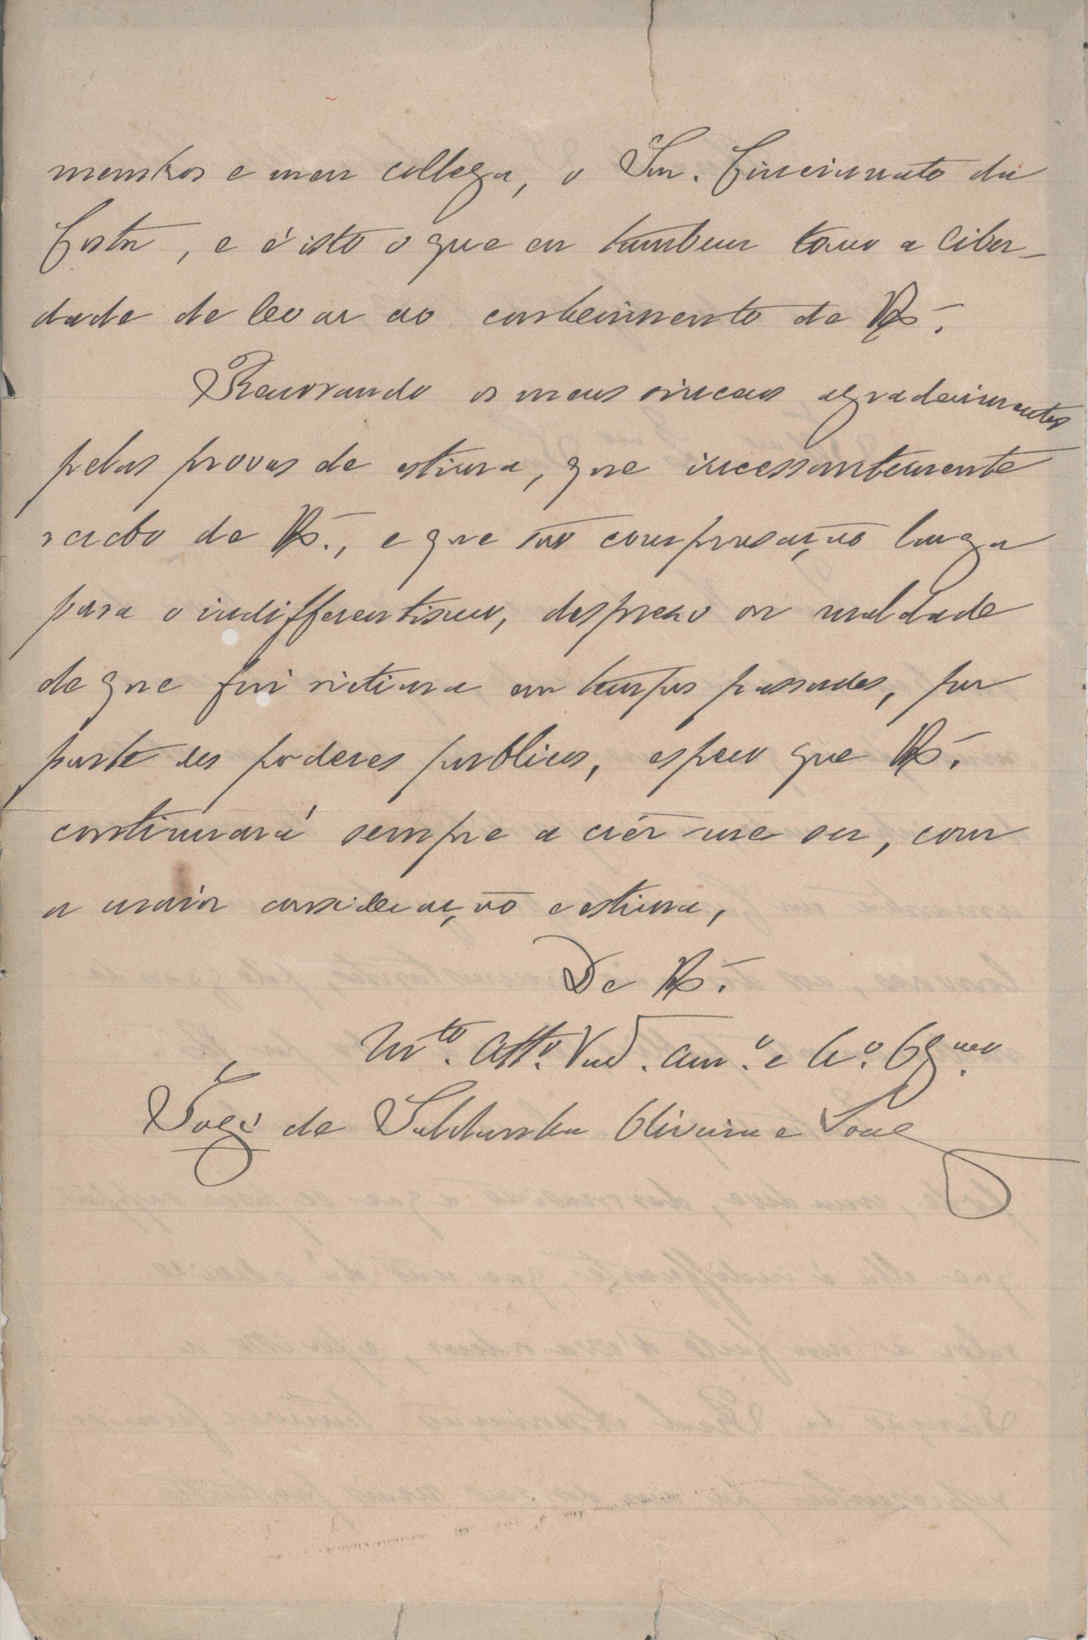 membros e meu collega, o Snr. Cincinnato da
Costa, e é isto o que eu tambem tomo a liber-
dade de levar ao conhecimento de V. Sª.
Renovando os meus sinceros agradecimentos
pelas provas de estima, que incessantemente
recebo de V. Sª., e que são compensação larga
para o indifferentismo, despreso ou maldade
de que fui victima em tempos passados, por
parte dos poderes publicos, espero que V. Sª.
continuará sempre a crêr-me ser, com
a maior consideração e estima,
De V. Sª.
Mto. Atto. Vnd. Am.o e C.o Obgmo.
José de Saldanha Oliveira e Souza